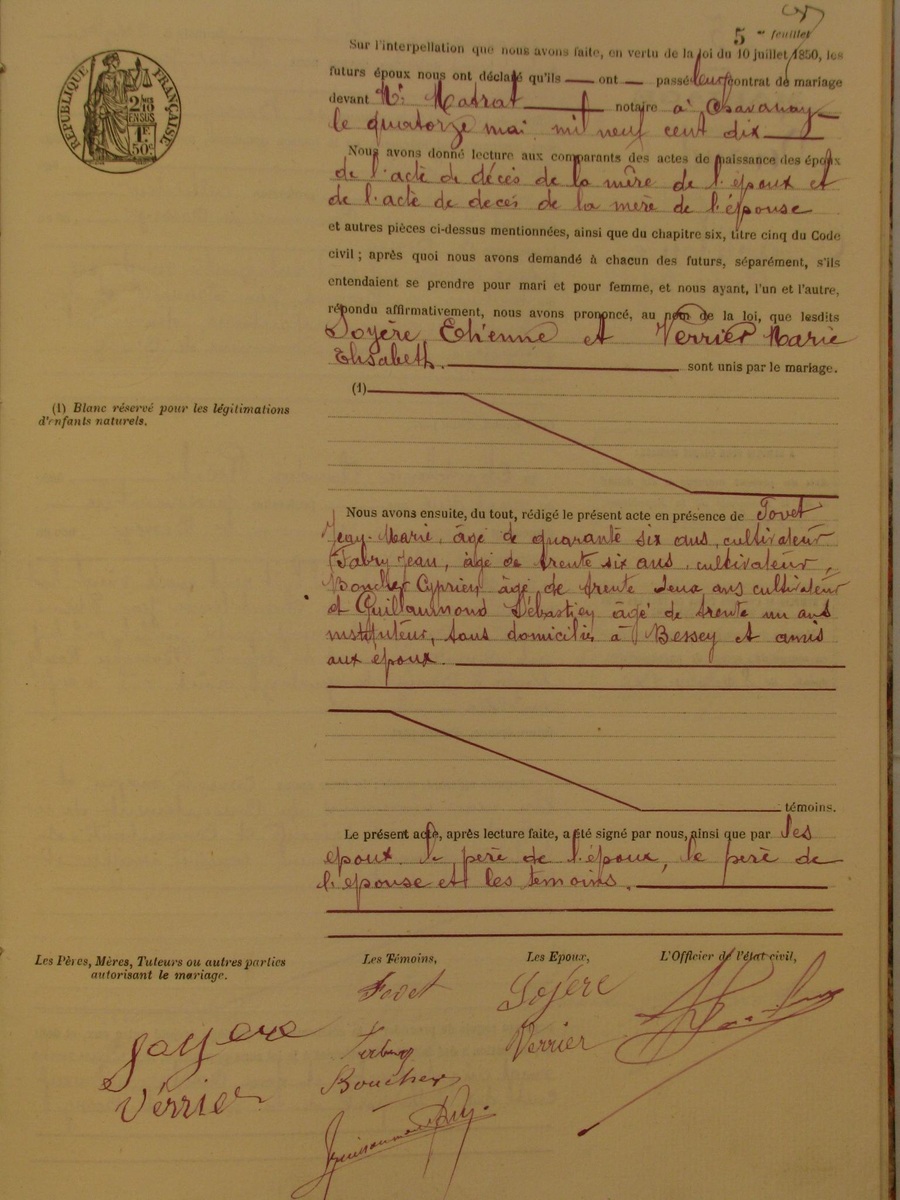 5 me feuillet
RÉPUBLIQUE FRANÇAISE
2/10
EN SUS
1F.
50c.
Sur l'interpellation que nous avons faite, en vertu de la loi du 10 juillet 1850, les
futurs époux nous ont déclaré qu'ils ont passé leur contrat de mariage
devant Me Matrat notaire à Chavanay
le quatorze mai mil neuf cent dix
Nous avons donné lecture aux comparants des actes de naissance des époux
de l'acte de décès de la mère de l'époux et
de l'acte de décès de la mère de l'épouse
et autres pièces ci-dessus mentionnées, ainsi que du chapitre six, titre cinq du Code
civil ; après quoi nous avons demandé à chacun des futurs, séparément, s'ils
entendaient se prendre pour mari et pour femme, et nous ayant, l'un et l'autre,
répondu affirmativement, nous avons prononcé, au nom de la loi, que lesdits
Soyère Etienne et Verrier Marie
Elisabeth. sont unis par le mariage.
(1)
(1) Blanc réservé pour les légitimations
d'enfants naturels.
Nous avons ensuite, du tout, rédigé le présent acte en présence de Fovet
Jean-Marie, âgé de quarante six ans, cultivateur
Fabry Jean, âgé de trente six ans, cultivateur,
Boucher Cyprien âgé de trente deux ans cultivateur
et Guillaumond Sébastien âgé de trente un ans
instituteur, tous domiciliés à Bessey et amis
aux époux.
témoins.
Le présent acte, après lecture faite, a été signé par nous, ainsi que par les
époux le père de l'époux, le père de
l'épouse et les témoins.
Les Pères, Mères, Tuteurs ou autres parties
autorisant le mariage.
Les Témoins,
Les Epoux,
L'Officier de l'état civil,
Soyere
Verrier
Fovet
Boucher
Soyere
Verrier